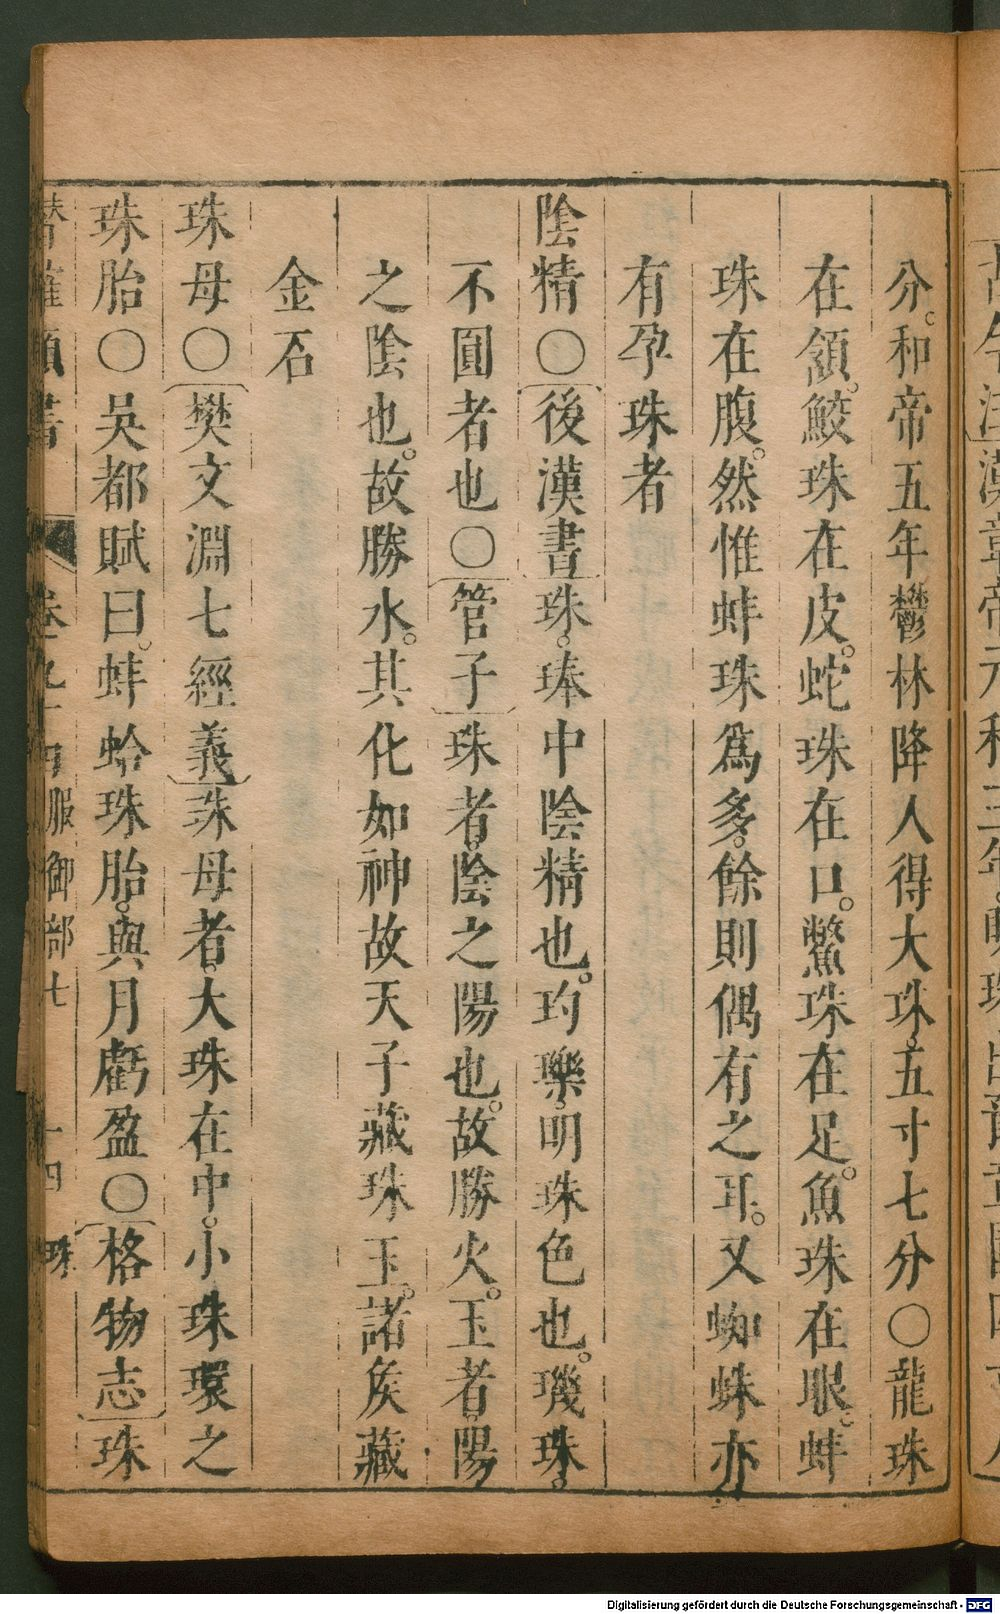 分。和帝五年鬱林降人得大珠。五寸七分〇龍珠
在頷。鮫珠在皮。蛇珠在口。鱉珠在足。魚珠在眼。蚌
珠在腹。然惟蚌珠爲多。餘則偶有之耳。又蜘蛛亦
有孕珠者
陰精〇後漢書珠。琫中陰精也。玓瓅。明珠色也。璣珠。
不圓者也〇管子珠者。陰之陽也。故勝火。玉者。陽
之陰也。故勝水。其化如神故天子藏珠玉。諸矦藏
金石
珠母〇樊文淵七經義珠母者。大珠在中。小珠環之
珠胎〇吳都賦曰。蚌蛤珠胎。與月虧盈〇格物志珠
潛確類書 卷九十四服御部七 十四 珠
Digitalisierung gefördert durch die Deutsche Forschungsgemeinschaft - DFG